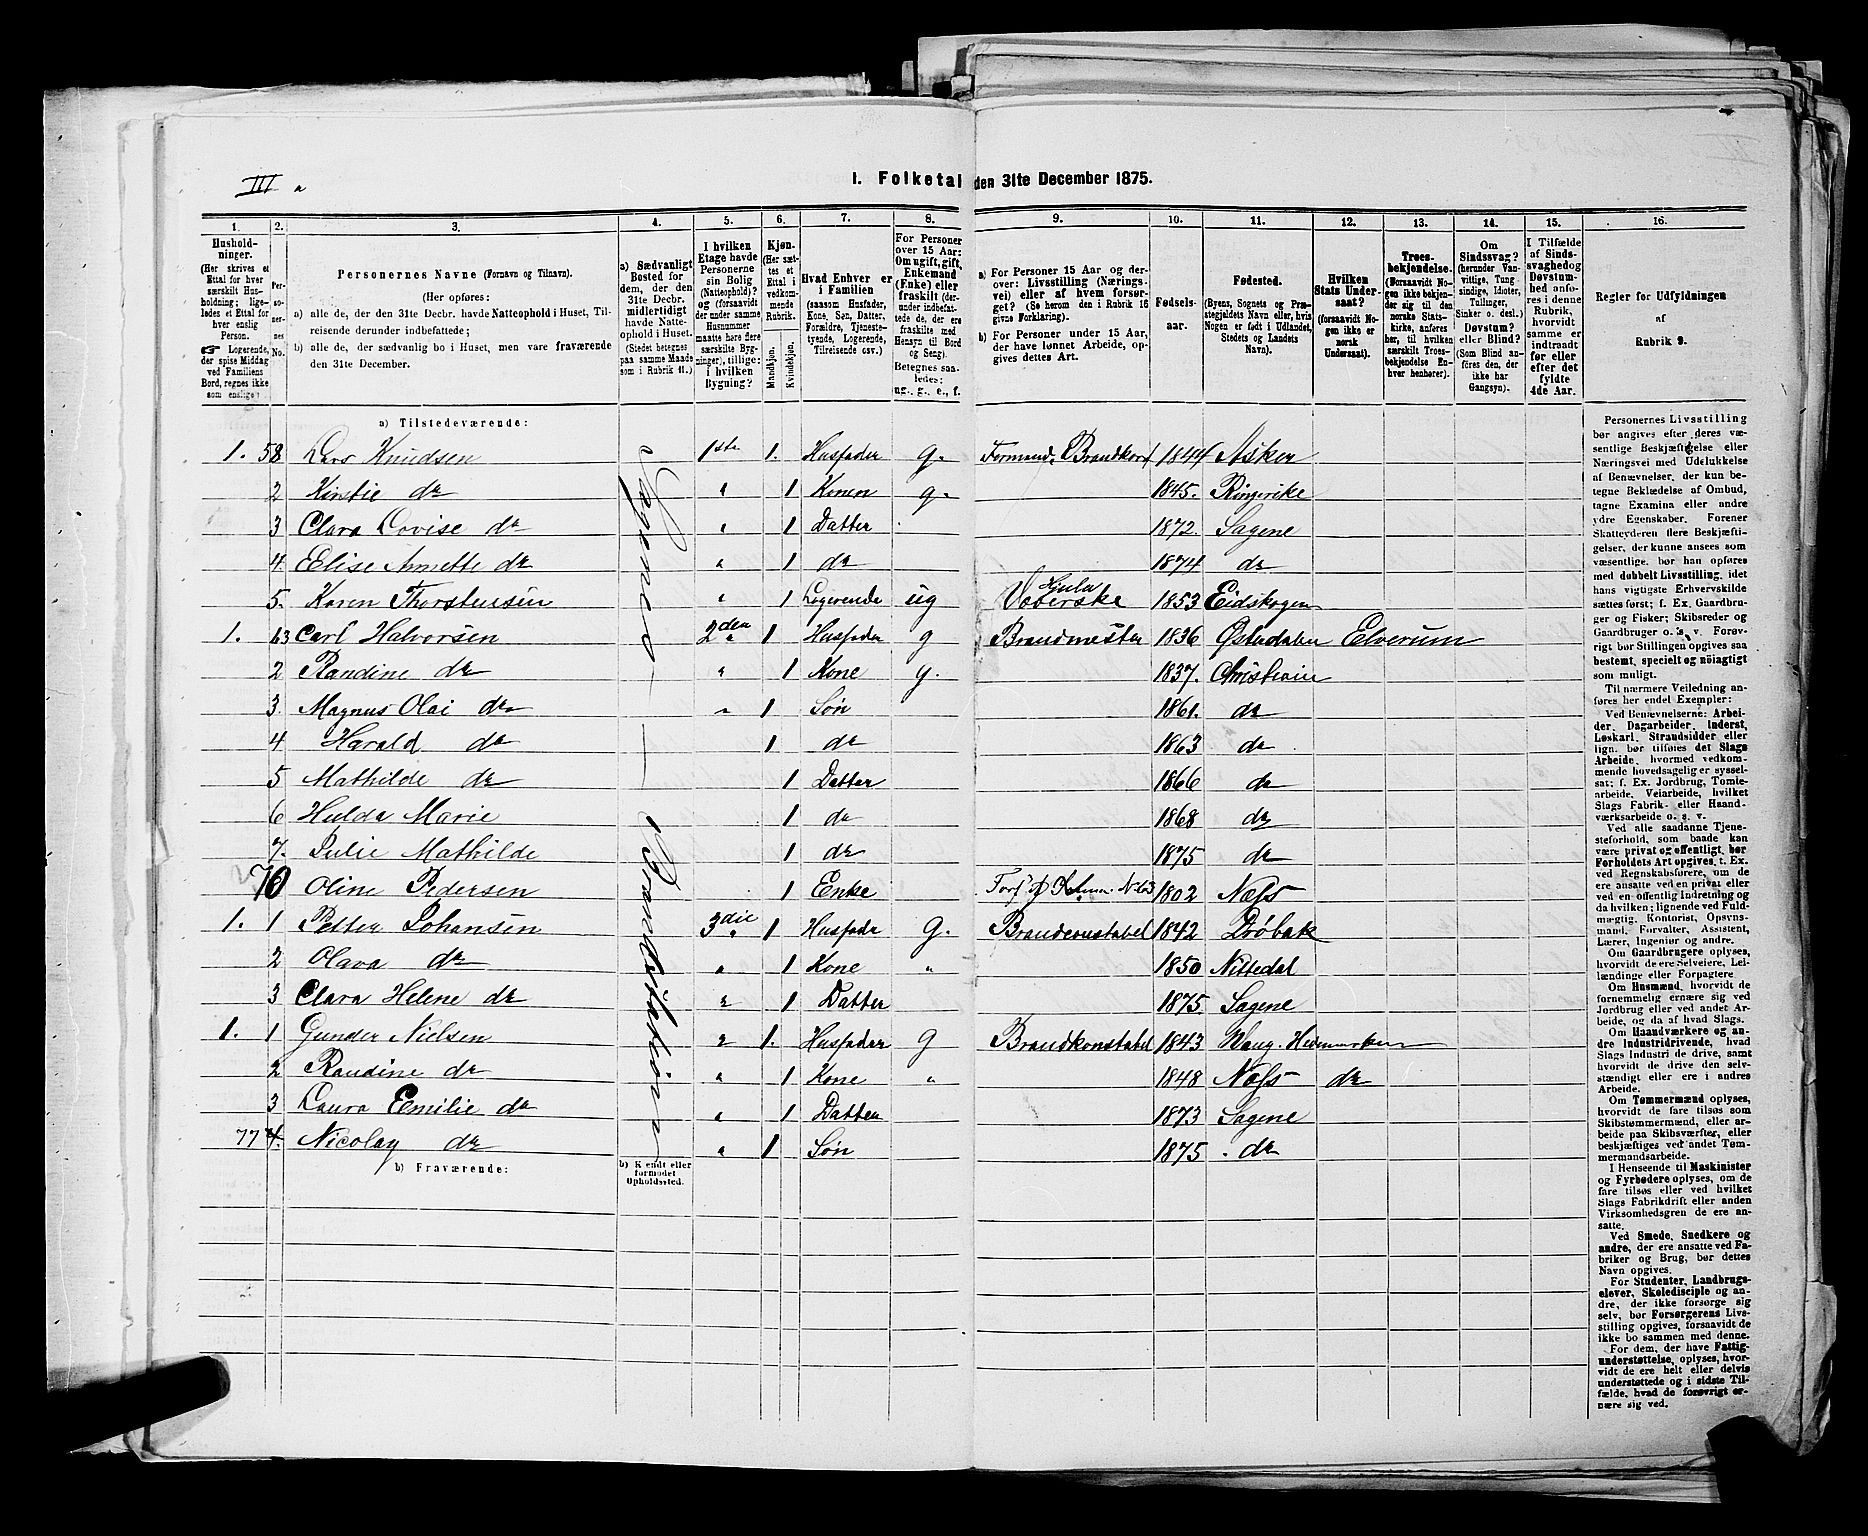 III a
I. Folketal den 31te December 1875.
1. 2. 3. 4. 5. 6. 7. 8. 9. 10. 11. 12. 13. 14. 15. 16.
Husholdninger. (Her skrives et Ettal for hver særskilt Husholdning; ligeledes et Ettal for hver enslig Person. Logerende, der spise Middag ved Familiens Bord, regnes ikke som enslige)
Personernes No.
Personernes Navne (Fornavn og Tilnavn).
(Her opføres:
a) alle de, der den 31te Decbr. havde Natteophold i Huset, Tilreisende derunder indbefattede;
b) alle de, der sædvanlig bo i Huset, men vare fraværende den 31te December.
a) Sædvanligt Bosted for dem, der den 31te Decbr. midlertidigt havde Natteophold i Huset. (Stedet betegnes paa samme Maade som i Rubrik 11.)
I hvilken Etage havde Personerne sin Bolig (Natteophold)? og (forsaavidt der under samme Husnummer maatte høre flere særskilte Bygninger), tillige: i hvilken Bygning?
Kjøn. (Her sættes et Ettal i vedkommende Rubrik.
Mandkjøn. Kvindekjøn.
Hvad Enhver er i Familien (saasom Husfader, Kone, Søn, Datter, Forældre, Tjenestetyende, Logerende, Tilreisende osv.)
For Personer over 15 Aar: Om ugift, gift, Enkemand (Enke) eller fraskilt (derunder indbefattede de, der ere fraskilte med Hensyn til Bord og Seng.) Betegnes saaledes: ug., g., e., f.
a) For Personer 15 Aar og derover: Livsstilling (Næringsvei) eller af hvem forsørget? (Se herom den i Rubrik 16 givne Forklaring).
b) For Personer under 15 Aar, der have lønnet Arbeide, opgives dettes Art.
Fødselsaar.
Fødested. (Byens, Sognets og Præstegjeldets Navn eller, hvis Nogen er født i Udlandet, Stedets og Landets Navn).
Hvilken Stats Undersaat? (forsaavidt Nogen ikke er norsk Undersaat).
Troesbekjendelse. (Forsaavidt Nogen ikke bekjender sig til den norske Statskirke, anføres her, til hvilken særskilt Troesbekjendelse Enhver henhører).
Om Sindssvag? (herunder Vanvittige, Tungsindige, Idioter, Tullinger, Sinker o. desl.) Døvstum? eller Blind? (Som Blind anføres den, der ikke har Gangsyn).
I Tilfælde af Sindssvaghed og Døvstumhed anføres i denne Rubrik, hvorvidt samme er indtraadt før eller efter det fyldte 4de Aar.
Regler for Udfyldningen af Rubrik 9.
a) Tilstedeværende:
1. 58 Lars Knudsen 1ste 1. Husfader g. Formand, Brandkor 1844 Asker
2 Kirstie do " 1 Konen g. 1845. Ringerike
3 Clara Lovise do " 1 Datter 1872. Sagene
4. Elise Annette do " 1 do 1874 do
5. Karen Thorstensen " 1 Logerende ug Hjula Væverske 1853 Eidskogen
1. 63 Carl Halvorsen 2den 1 Husfader g Brandmester 1836 Østerdalen Elverum
2 Randine do " 1 Kone g. 1837. Christiania
3. Magnus Olai do " 1 Søn 1861. do
4 Harald do 1 do 1863 do
5 Mathilde do 1 Datter 1866 do
6 Hulda Marie 1 do 1868 do
7. Julie Mathilde 1 do 1875 do
70 Oline Pedersen 1 Enke Fors. af No 63 1802 Næs
1. 1 Petter Johansen 3die 1 Husfader G. Brandconstabel 1842 Drøbak
2 Olava do " 1 Kone " 1850 Nittedal
3 Clara Helene do " 1 Datter 1875. Sagene
1. 1 Gunder Nielsen " 1. Husfader g Brandkonstabel 1843 Vang. Hedmarken
2 Randine do " 1 Kone " 1848 Næs do
3 Laura Emilie do " 1 Datter 1873 Sagene
77 4. Nicolay do " 1 Søn 1875 do
Sagenes — Brandstation
b) Fraværende:
b) Kjendt eller formodet Opholdssted.
Personernes Livsstilling bør angives efter deres væsentlige Beskjæftigelse eller Næringsvei med Udelukkelse af Benævnelser, der kun betegne Beklædelse af Ombud, tagne Examina eller andre ydre Egenskaber. Forener Skatteyderen flere Beskjæftigelser, der kunne ansees som væsentlige, bør han opføres med dobbelt Livsstilling, idet hans vigtigste Erhvervskilde sættes først; f. Ex. Gaardbruger og Fisker; Skibsreder og Gaardbruger o. s. v. Forøvrigt bør Stillingen opgives saa bestemt, specielt og nöiagtigt som muligt.
Til nærmere Veiledning anføres her endel Exempler:
Ved Benævnelserne: Arbeider, Dagarbeider, Inderst, Løskarl, Strandsidder eller lign. bør tilføies det Slags Arbeide, hvormed vedkommende hovedsagelig er sysselsat; f. Ex. Jordbrug, Tomtearbeide, Veiarbeide, hvilket Slags Fabrik- eller Haandværksarbeide o. s. v.
Ved alle saadanne Tjenesteforhold, som baade kan være privat og offentligt, bør Forholdets Art opgives, t. Ex. ved Regnskabsførere, om de ere ansatte ved en privat eller ved en offentlig Indretning og da hvilken; lignende ved Fuldmægtig, Kontorist, Opsynsmand, Forvalter, Assistent, Lærer, Ingeniør og andre.
Om Gaardbrugere oplyses, hvorvidt de ere Selveiere, Leilændinge eller Forpagtere.
Om Husmænd, hvorvidt de fornemmelig ernære sig ved Jordbrug eller ved andet Arbeide, og da af hvad Slags.
Om Haandværkere og andre Industridrivende, hvad Slags Industri de drive, samt hvorvidt de drive den selvstændigt eller ere i andres Arbeide.
Om Tømmermænd oplyses, hvorvidt de fare tilsøs som Skibstømmermænd, eller arbeide paa Skibsværfter, eller beskjæftiges ved andet Tømmermandsarbeide.
I Henseende til Maskinister og Fyrbødere oplyses, om de fare tilsøs eller ved hvilket Slags Fabrikdrift eller anden Virksomhedsgren de ere ansatte.
Ved Smede, Snedkere og andre, der ere ansatte ved Fabriker og Brug, bør dettes Navn opgives.
For Studenter, Landbrugselever, Skoledisciple og andre, der ikke forsørge sig selv, bør Forsørgerens Livsstilling opgives, forsaavidt de ikke bo sammen med denne.
For dem, der have Fattigunderstøttelse, oplyses, hvorvidt de ere helt eller delvis understøttede og i sidste Tilfælde, hvad de forøvrigt ernære sig ved.